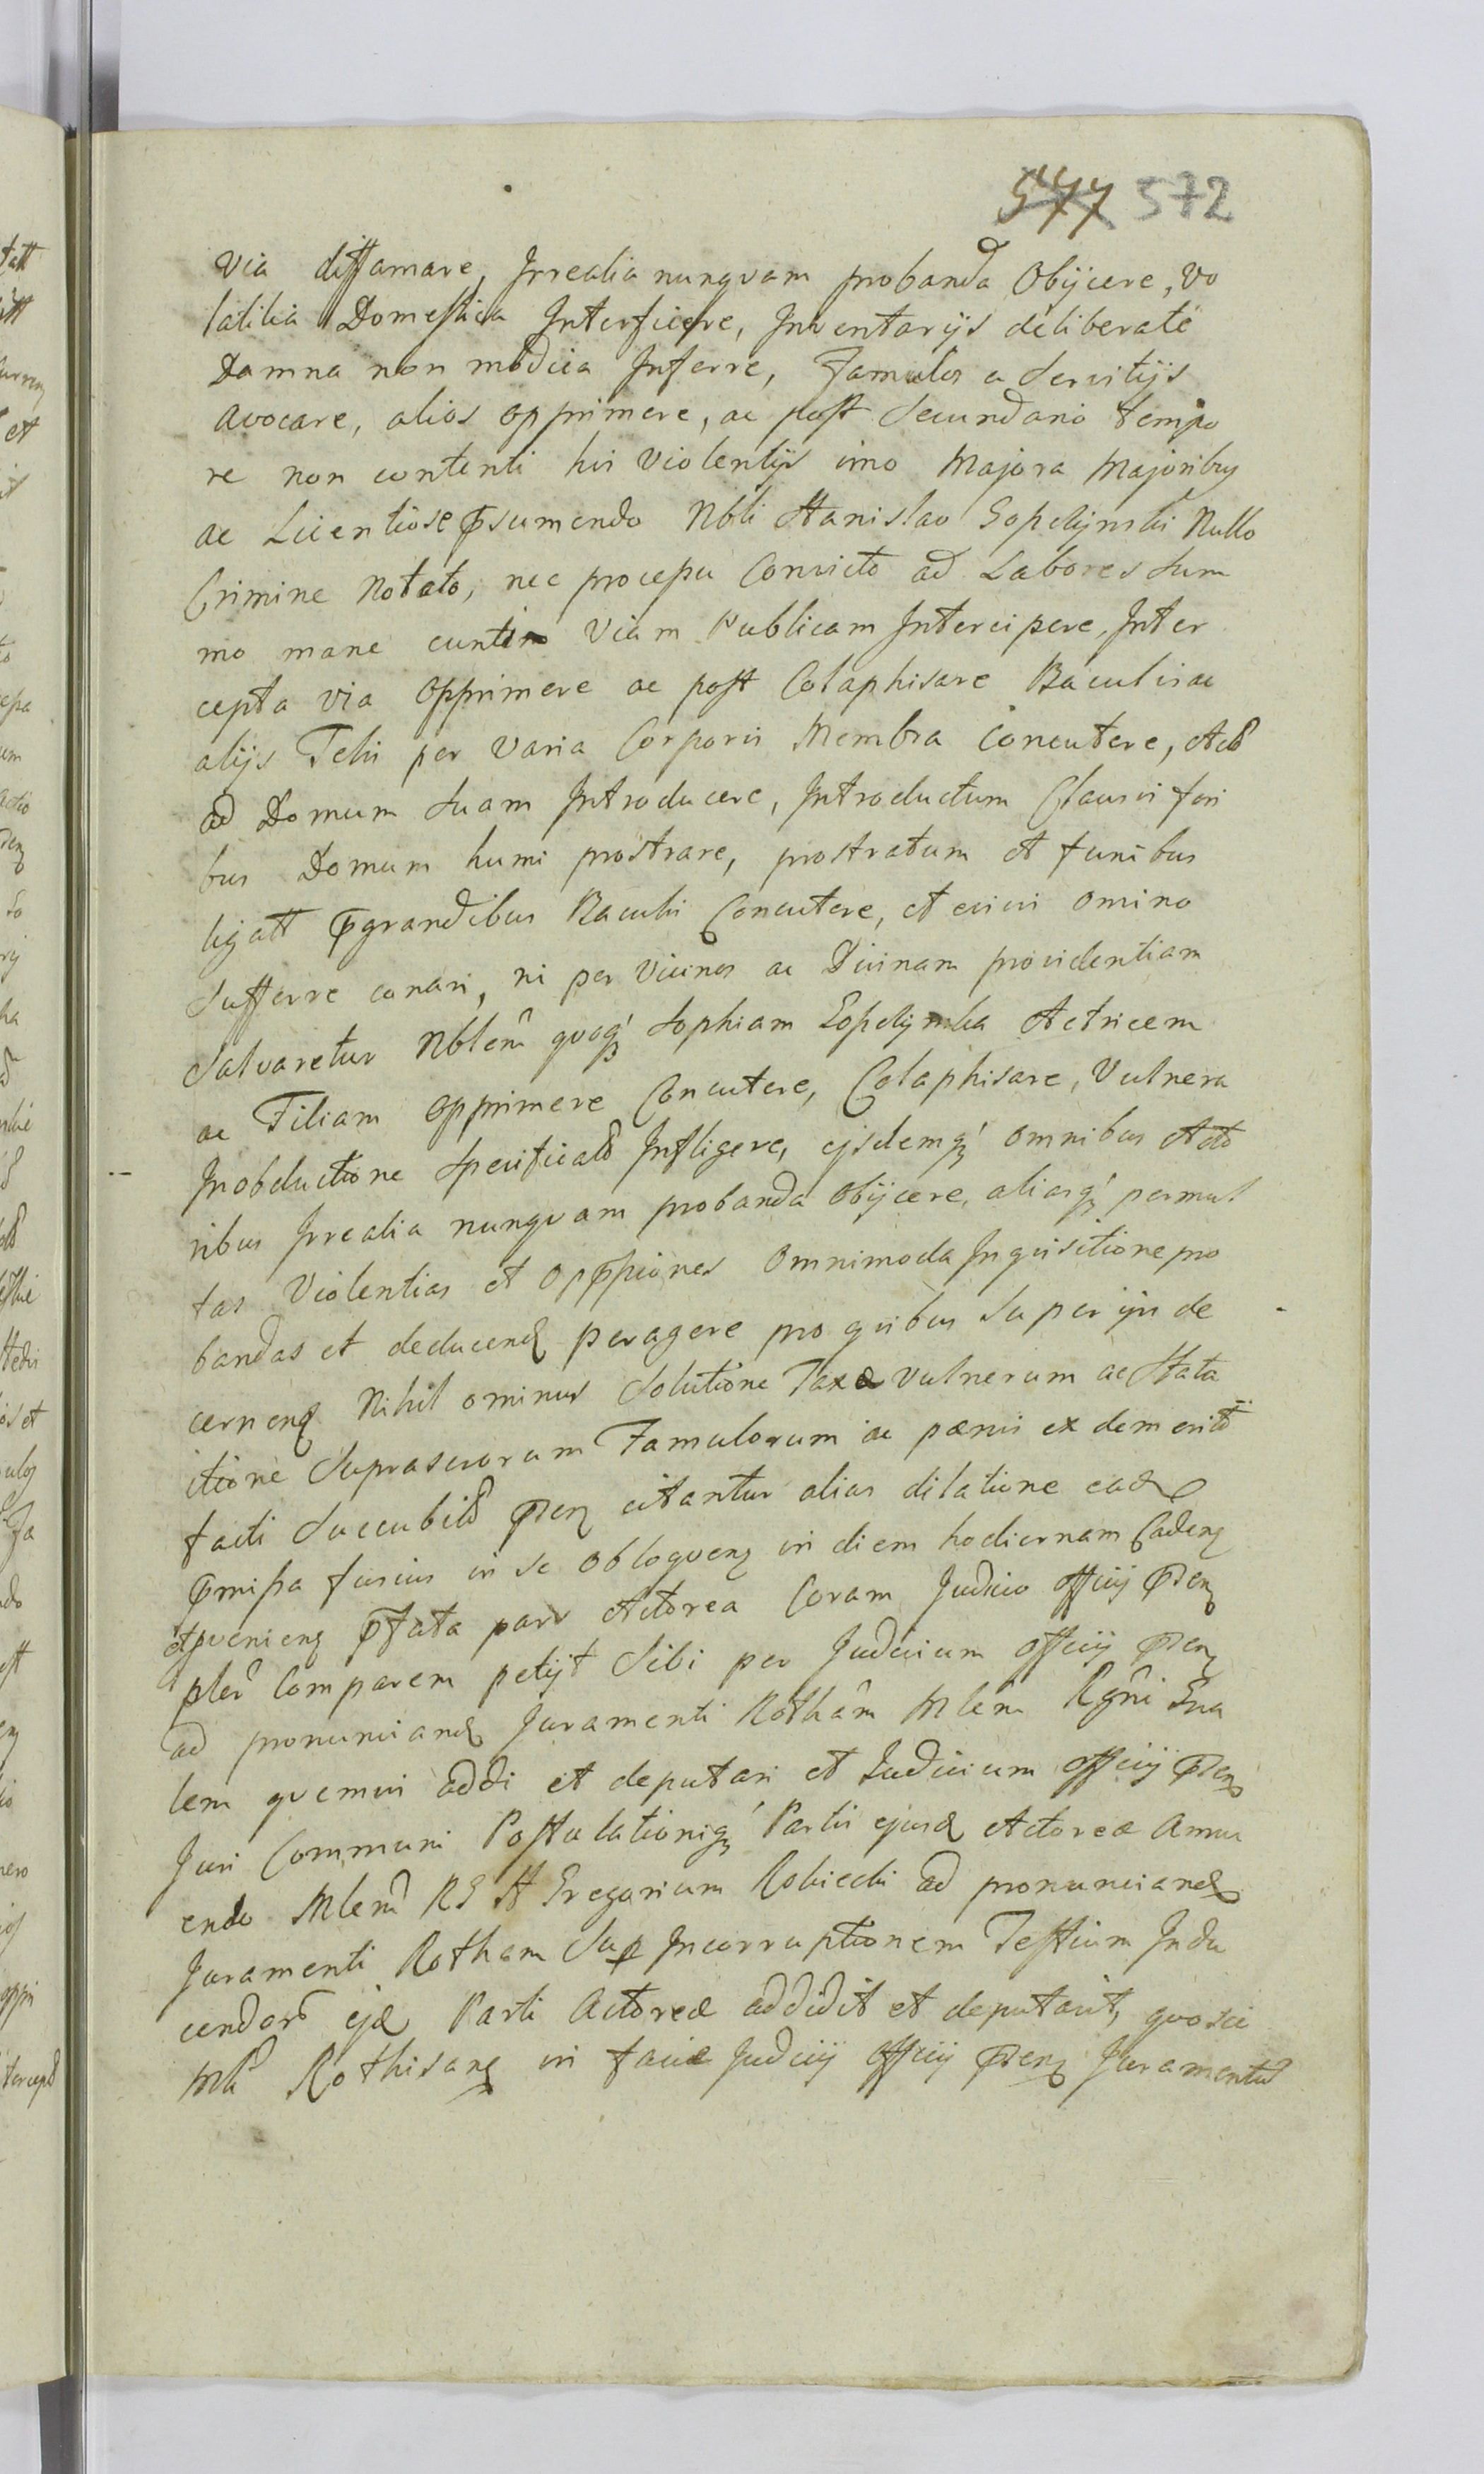 577 572
via diffamare, Jrrealia nunqvam probanda Obijcere, Vo
latilia Domestica Interficere, Inventarijs deliberate
Damna non modica Inferre, Famulos a Servitijs
avocare, alios opprimere, ac post Secundario tempo
re non contenti his Violentijs imo Majora Majoribus
ac Licentiose Psumendo Nbli Stanislao Nullo
Crimine Notato, nec processu Convicto ad Labores Sum
mo mane eunti Viam Publicam Intercipere, Inter
cepta via Opprimere ac post Colaphisare Baculis ac
alijs Telis per varia Corporis Membra Concutere,
ad Domum Suam Introducere, Introductum Clausis fori
bus Domum humi prostrare, prostratum et funibus
ligatt Pgrandibus Baculis Concutere, et e vivis omino
Sufferre conari, ni per Vicinos ac Divinam providentiam
Salvaretur Nblem qvoq Sophiam Actricem
ac Filiam Opprimere Concutere, Colaphisare, Vulnera
Inobductione Specificata Infligere, ejsdemq omnibus Acto
ribus Jrrealia nunqvam probanda obijcere, aliasq permul
tas Violentias et Oppssiones Omnimoda Inqvisitione pro
bandas et deducend peragere pro qvibus Super ijs de
cernend Nihil ominus Solutione Taxæ vulnerum ac Stata
itione Suprascrorum Famulorum ac pænis ex demeritt
facti Succubitt Psen citantur alias dilatione ead
Pmissa fusius in se obloqven in diem hodiernam Caden
et pvenien Pfata pars Actorea Coram Judicio officij Psen
plr Comparem petijt Sibi per Judicium officij Psen
ad pronunciand Juramenti Rotham Mlem Rgni Gna
lem qvemvis addi et deputari et Judicium officij Psen
Juri Communi Postulationiq Partis ejusd Actoreæ Annu
endo Mlem RG Gregorium Robiecki ad pronunciand
Juramenti Rotham Sup Incorruptionem Testium Indu
cendor ejd Parti Actoreæ addidit et deputavit, qvo sic
Mli Rothisan in facie Judicij officij Psen Juramentū